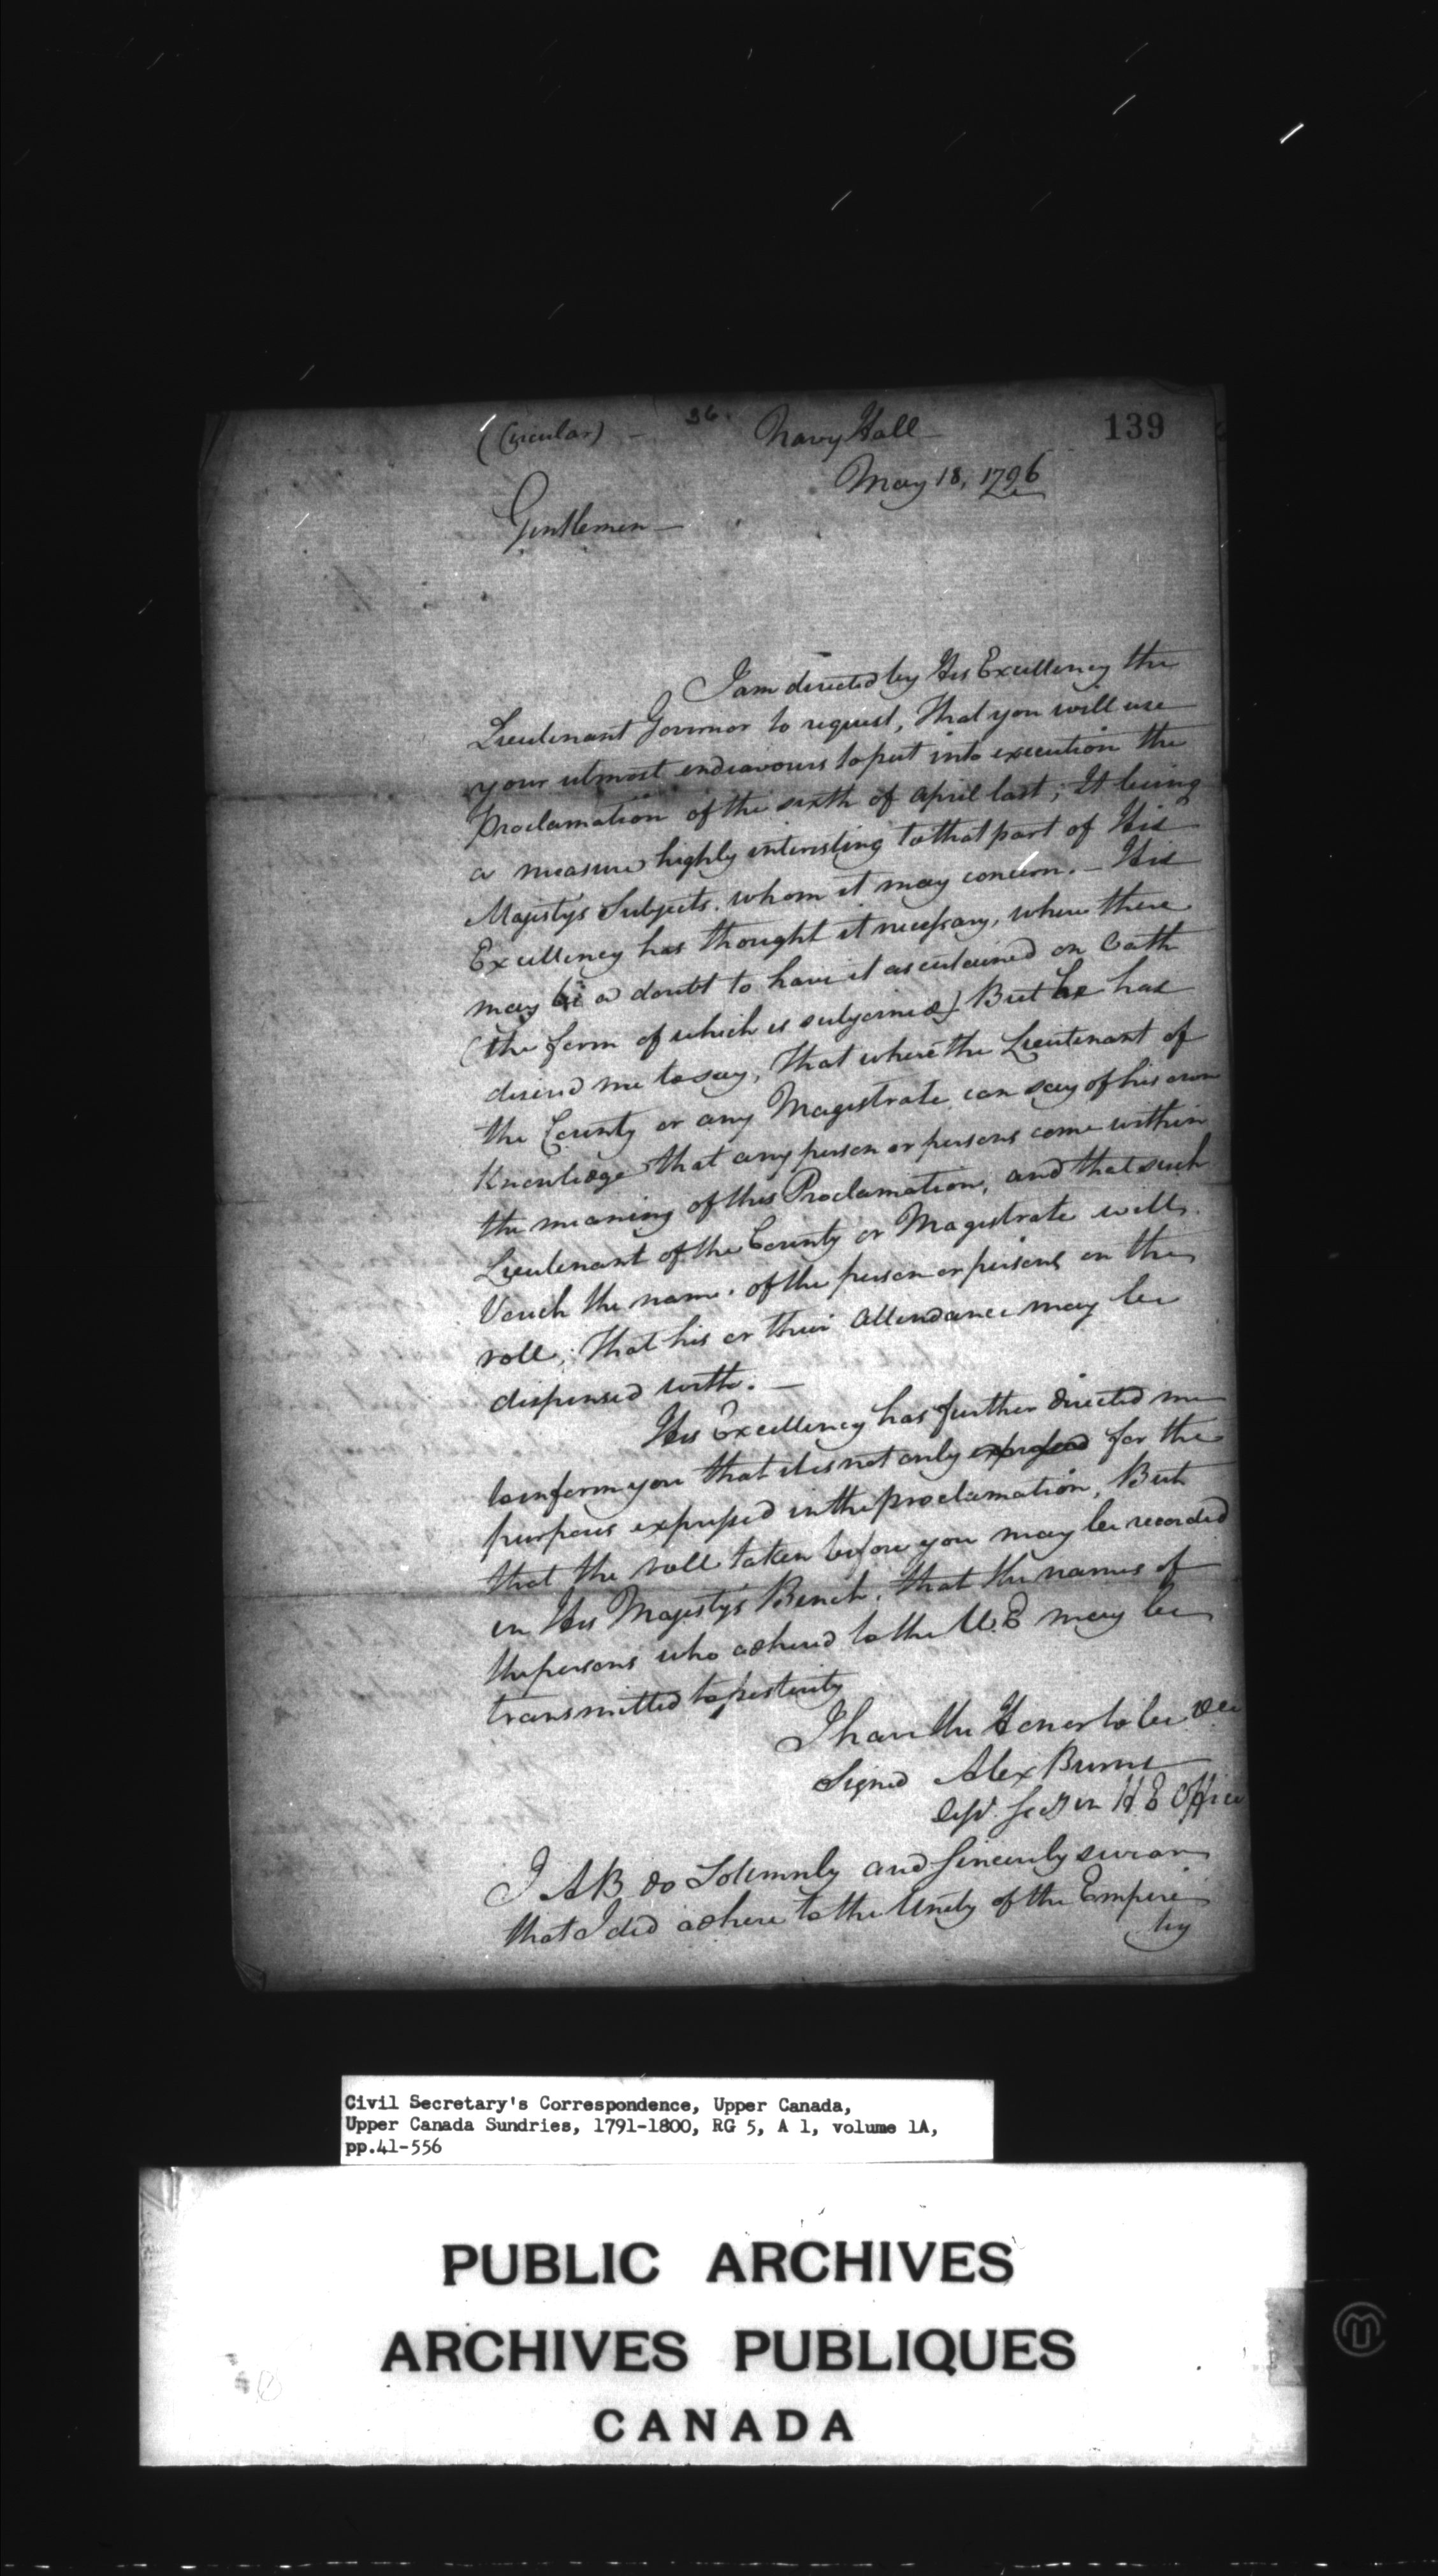 (Circular) — 36. Navy Hall 139
May 18, 1796
Gentlemen —
I am directed by His Excellency the
Lieutenant Governor to request, that you will use
your utmost endeavours to put into execution the
Proclamation of the sixth of april last; It being
a measure highly interesting to that part of His
Majesty's Subjects. whom it may concern. — His
Excellency has thought it necessary, where there
may be a doubt to have it ascertained on Oath
(the form of which is subjoined) But he has
desired me to say, that where the Lieutenant of
the County or any Magistrate can say of his own
Knowledge that any person or persons come within
the meaning of this Proclamation, and that such
Lieutenant of the County or Magistrate will
Vouch the name. of the person or persons on the
roll, that his or their attendance may be
dispensed with. —
His Excellency has further directed me
to inform you that it is not only for the
purposes expressed in the proclamation, But
that the roll taken before you may be recorded
in His Majesty's Bench, that the names of
the persons who adhered to the U.E may be
transmitted to posterity
I have the Honor to be &ca
Signed Alex Burns
Depy. Secy in H E Office
I AB do Solemnly and Sincerely swear
that I did adhere to the Unity of the Empire
by
Civil Secretary's Correspondence, Upper Canada,
Upper Canada Sundries, 1791-1800, RG 5, A 1, volume 1A,
pp.41-556
PUBLIC ARCHIVES
ARCHIVES PUBLIQUES
CANADA